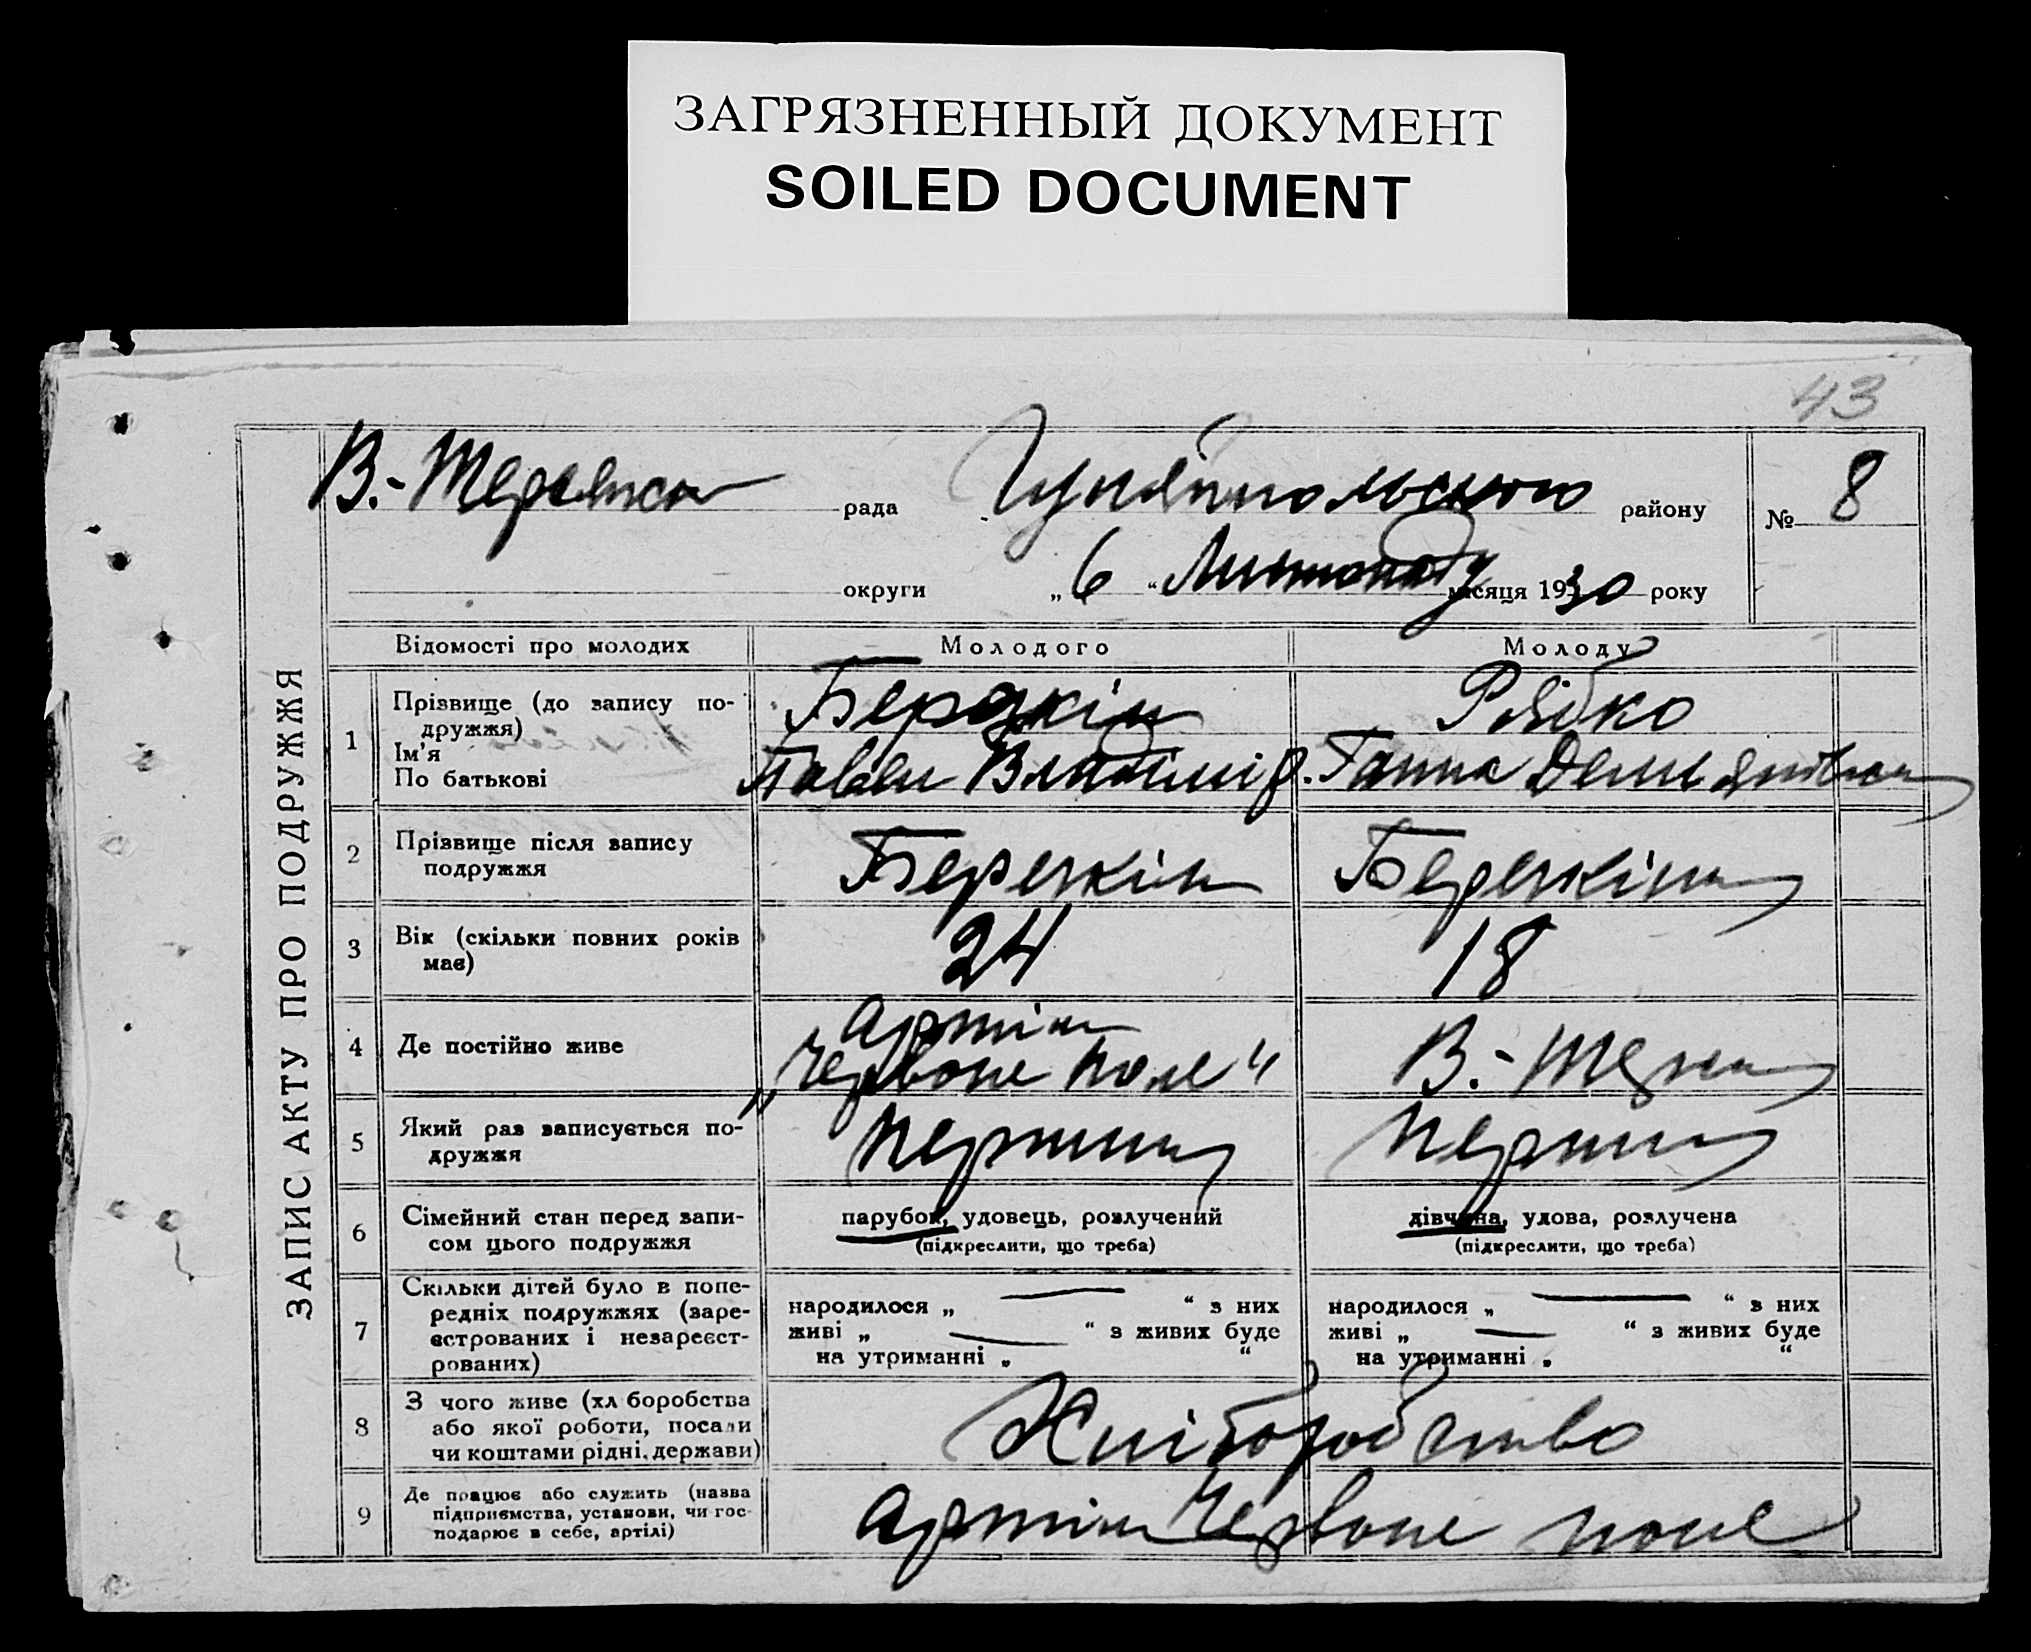 ЗАГРЯЗНЕННЫЙ ДОКУМЕНТ
SOILED DOCUMENT
43
ЗАПИС АКТУ ПРО ПОДРУЖЖЯ
рада Гуляйпольського району № 8
округи „6“ Листопаду місяця 1930 року
Відомості про молодих Молодого Молоду
1 Прізвище (до запису по-
дружжя)
Ім’я
По батькові
Рябко
Павел Владімір. Ганна Демьянівна
2 Прізвище після запису
подружжя
Бережкін Бережкіна
3 Вік (скільки повних років
має)
24 18
4 Де постійно живе
Артіль
„Червоне поле“
5 Який раз записується по-
дружжя
6 Сімейний стан перед запи-
сом цього подружжя
парубок, удовець, розлучений
(підкреслити, що треба)
дівчина, удова, розлучена
(підкреслити, що треба)
7 Скільки дітей було в попе-
редніх подружжях (заре-
єстрованих і незареєст-
рованих)
народилося „ — “ з них
живі „ — “ з живих буде
на утриманні „ “
народилося „ — “ з них
живі „ — “ з живих буде
на утриманні „ “
8 З чого живе (хл боробства
або якої роботи, посади
чи коштами рідні, держави)
Хліборобство
9 Де працює або служить (назва
підприємства, установи, чи гос-
подарює в себе, артілі)
Артіль Червоне поле